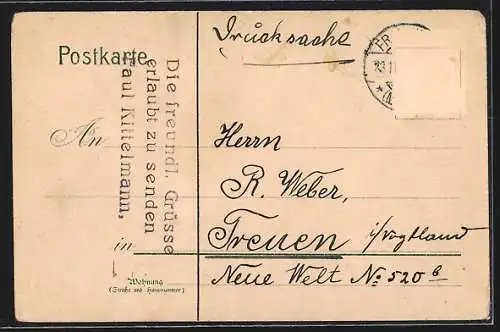 Drucksache
Postkarte
Die freundl. Grüsse
erlaubt zu senden
Paul Kittelmann,
An
Herrn
R. Weber,
in Treuen i/Vogtland
Neue Welt No 520b
Wohnung
(Straße und Hausnummer)